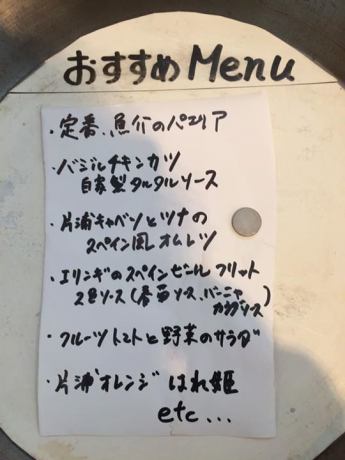 おすすめMenu
・定番、魚介のパエリア
・バジルチキンカツ
自家製タルタルソース
・片浦キャベツとツナの
スペイン風オムレツ
・エリンギのスペインビールフリット
2色ソース(春菊ソース、バーニャ
カウダソース)
・フルーツトマトと野菜のサラダ
・片浦オレンジ はれ姫
etc...